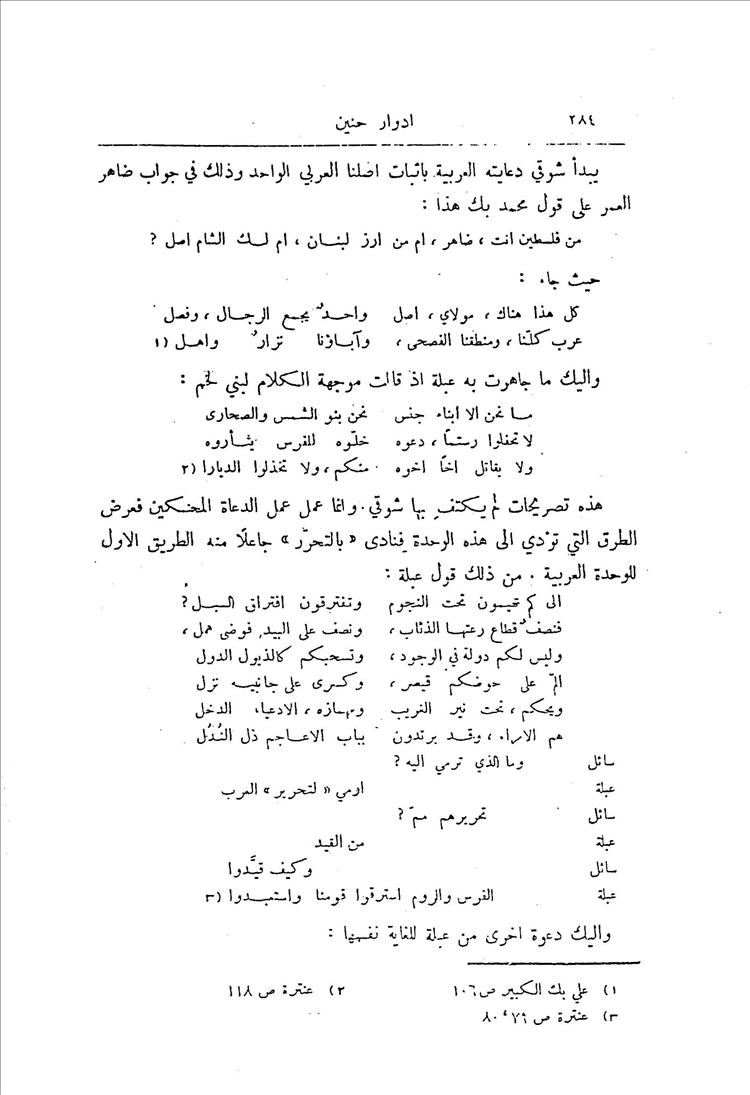 ٢٨٤ ادوار حنين
يبدأ شوقي دعايته العربية باثبات اصلنا العربي الواحد وذلك في جواب ضاهر
العمر على قول محمد بك هذا :
من فلسطين انت ، ضاهر ، ام من ارز لبنان ، ام لك الشام اصل ?
حيث جاء :
كل هذا هناك ، مولاي ، اصل واحدٌ يجمع الرجال ، وفصل
عرب كلّنا ، ومنطقنا الفصحى ، وآباؤنا نزارٌ واهل (١
واليك ما جاهرت به عبلة اذ قالت موجهة الكلام لبني لخم :
ما نحن الا أبناء جنس نحن بنو الشمس والصحارى
لا تحفلوا رستمًا ، دعوه خلّوه للفرس يثأروه
ولا يقاتل اخًا اخوه منكم ، ولا تخذلوا الديارا (٢
هذه تصريحات لم يكتفِ بها شوقي وانما عمل عمل الدعاة المحنكين فعرض
الطرق التي تؤدي الى هذه الوحدة فنادى « بالتحرّر » جاعلًا منه الطريق الاول
للوحدة العربية . من ذلك قول عبلة :
الى كم تهيمون تحت النجوم وتفترقون افتراق السبل ?
فنصفٌ قطاع رعتها الذئاب ، ونصف على البيد فوضى همل ،
وليس لكم دولة في الوجود ، وتسحبكم كالذيول الدول
المّ على حوضكم قيصر ، وكسرى على جانبيه نزل
ويحكم ، تحت نير الغريب ومهمازه ، الادعياء الدخل
هم الامراء ، وقد يرتدون بباب الاعاجم ذل النُدُل
سائل وما الذي ترمي اليه ?
عبلة ارمي « لتحرير » العرب
سائل تحريرهم ممّ ?
عبلة من القيد
سائل وكيف قيَّدوا
عبلة الفرس والروم استرقوا قومنا واستبدوا (٣
واليك دعوة اخرى من عبلة للغاية نفسها :
١) علي بك الكبير ص ١٠٦ ٢) عنترة ص ١١٨
٣) عنترة ص ٧٩ ، ٨٠